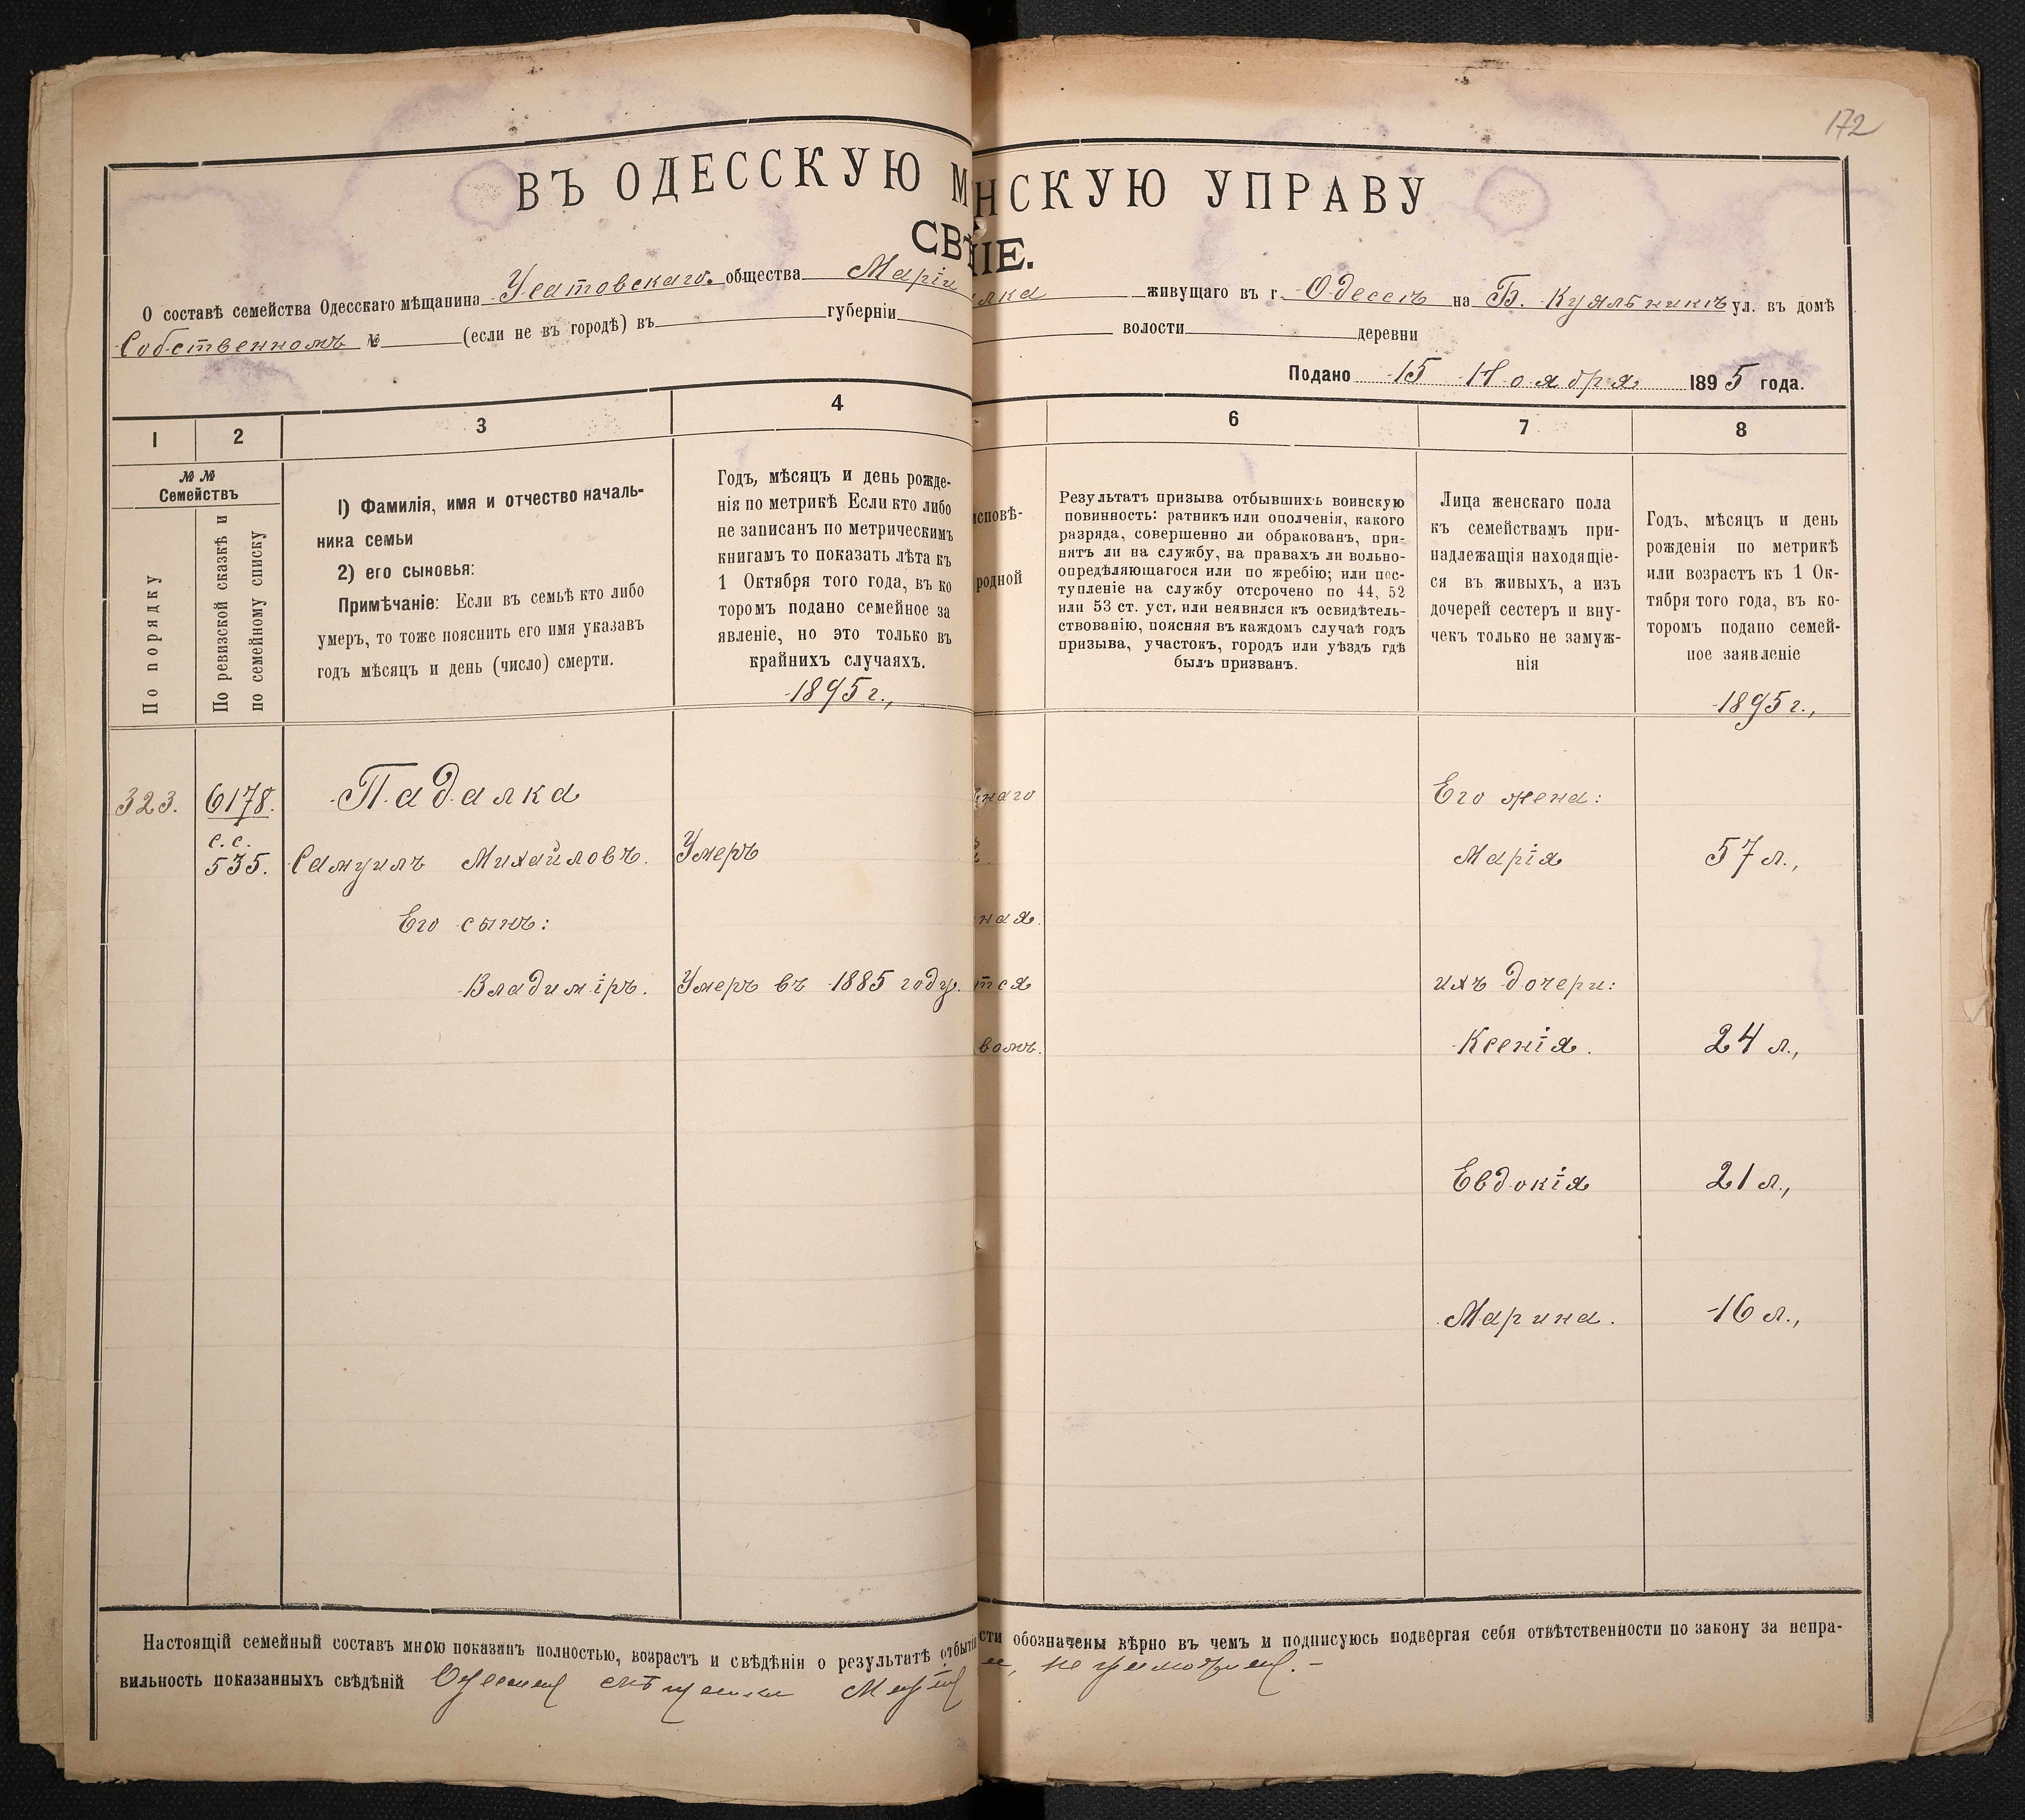 172
ВЪ ОДЕССКУЮ М НСКУЮ УПРАВУ
СВѢ НІЕ.
О составѣ семейства Одесскаго мѣщанина Усатовскаго общества Маріи лка живущаго въ г. Одессѣ на Б. Куяльникѣ ул. въ домѣ
Собственномъ № (если не въ городѣ) въ губерніи волости деревни
Подано 15 Ноября 1895 года.
1 2 3 4 6 7 8
№ №
Семействъ
По порядку
По ревизской сказкѣ и
по семейному списку
1) Фамилія, имя и отчество началь-
ника семьи
2) его сыновья:
Примѣчаніе: Если въ семьѣ кто либо
умеръ, то тоже пояснить его имя указавъ
годъ мѣсяцъ и день (число) смерти.
Годъ, мѣсяцъ и день рожде-
нія по метрикѣ Если кто либо
не записанъ по метрическимъ
книгамъ то показать лѣта къ
1 Октября того года, въ ко
торомъ подано семейное за
явленіе, но это только въ
крайнихъ случаяхъ.
1895 г.,
исповѣ-
родной
Результатъ призыва отбывшихъ воинскую
повинность: ратникъ или ополченія, какого
разряда, совершенно ли обракованъ, при-
нятъ ли на службу, на правахъ ли вольно-
опредѣляющагося или по жребію; или пос-
тупленіе на службу отсрочено по 44, 52
или 53 ст. уст, или неявился къ освидѣтель-
ствованію, поясняя въ каждомъ случаѣ годъ
призыва, участокъ, городъ или уѣздъ гдѣ
былъ призванъ.
Лица женскаго пола
къ семействамъ при-
надлежащія находящіе-
ся въ живыхъ, а изъ
дочерей сестеръ и вну-
чекъ только не замуж-
нія
Годъ, мѣсяцъ и день
рожденія по метрикѣ
или возрастъ къ 1 Ок-
тября того года, въ ко-
торомъ подано семей-
ное заявленіе
1895 г.,
323. 6178. Падалка наго Его жена:
с.с.
535. Самуилъ Михайловъ. Умеръ Марія 57 л.,
Его сынъ: ная.
Владиміръ. Умеръ въ 1885 году. тся ихъ дочери:
вомъ. Ксенія. 24 л.,
Евдокія 21 л.,
Марина. 16 л.,
Настоящій семейный составъ мною показанъ полностью, возрастъ и свѣдѣнія о результатѣ отбыті сти обозначены вѣрно въ чемъ и подписуюсь подвергая себя отвѣтственности по закону за непра-
вильность показанныхъ свѣдѣній Одесская мѣщанка Марія неграмотная.